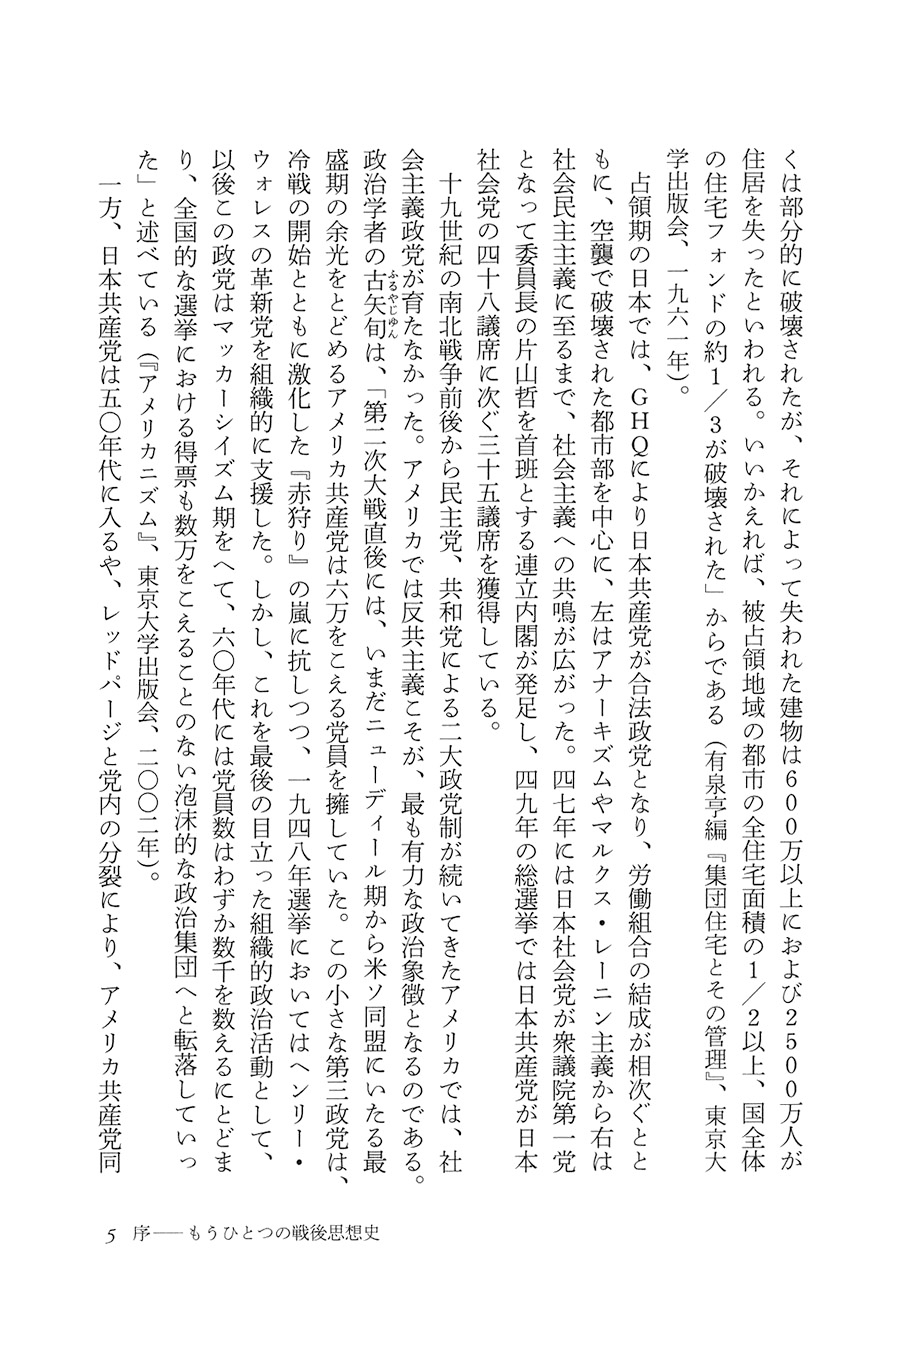 くは部分的に破壊されたが、それによって失われた建物は600万以上におよび2500万人が
住居を失ったといわれる。いいかえれば、被占領地域の都市の全住宅面積の1/2以上、国全体
の住宅フォンドの約1/3が破壊された」からである（有泉亨編『集団住宅とその管理』、東京大
学出版会、一九六一年）。
占領期の日本では、GHQにより日本共産党が合法政党となり、労働組合の結成が相次ぐとと
もに、空襲で破壊された都市部を中心に、左はアナーキズムやマルクス・レーニン主義から右は
社会民主主義に至るまで、社会主義への共鳴が広がった。四七年には日本社会党が衆議院第一党
となって委員長の片山哲を首班とする連立内閣が発足し、四九年の総選挙では日本共産党が日本
社会党の四十八議席に次ぐ三十五議席を獲得している。
十九世紀の南北戦争前後から民主党、共和党による二大政党制が続いてきたアメリカでは、社
会主義政党が育たなかった。アメリカでは反共主義こそが、最も有力な政治象徴となるのである。
政治学者の古矢旬は、「第二次大戦直後には、いまだニューディール期から米ソ同盟にいたる最
ふるやじゆん
盛期の余光をとどめるアメリカ共産党は六万をこえる党員を擁していた。この小さな第三政党は、
冷戦の開始とともに激化した『赤狩り』の嵐に抗しつつ、一九四八年選挙においてはヘンリー・
ウォレスの革新党を組織的に支援した。しかし、これを最後の目立った組織的政治活動として、
以後この政党はマッカーシイズム期をへて、六〇年代には党員数はわずか数千を数えるにとどま
り、全国的な選挙における得票も数万をこえることのない泡沫的な政治集団へと転落していっ
た」と述べている（『アメリカニズム』、東京大学出版会、二〇〇二年）。
一方、日本共産党は五〇年代に入るや、レッドパージと党内の分裂により、アメリカ共産党同
5 序──もうひとつの戦後思想史